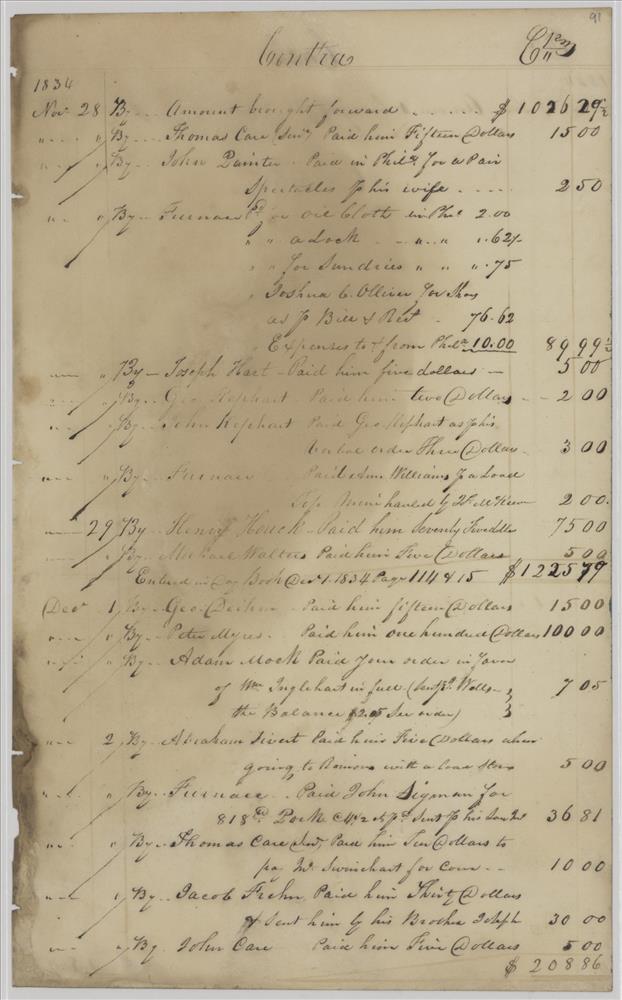 91
Contra Cr
1834
Nov 28 By Amount brought forward $ 1026 29½
" By Thomas Care Senr Paid him Fifteen Dollars 15 00
" By John Painter Paid in Phila for a Pair
Spectacles p his wife 2 50
" By Furnace Pd for Oil Cloth in Phila 2.00
" " a Lock " " .62½
" " for Sundries " " " .75
" Joshua C. Olliver for Shoes
as p Bill & Rect 76.62
" Expenses to & from Phila 10.00 89 99½
" By Joseph Hart Paid him five dollars 5 00
" By Geo Kephart Paid him two Dollars 2 00
" By John Kephart Paid Geo Kephart as p his
Verbal order Three Dollars 3 00
" By Furnace Paid Williams p a Load
hauled by 2 00
29 By Henry Houck Paid him Seventy five dlls 75 00
" By Michael Walters Paid him Five Dollars 5 00
Entered in Day Book Decr 1. 1834 Page 114 & 15 $1225 79
Decr 1 By Geo. Deihm Paid him fifteen Dollars 15 00
" By Peter Myres Paid him one hundred Dollars 100 00
" By Adam Mock Paid your order in favor
of Wm Inglehart in full (Sent p Wells
the Balance $2.05 See order) 7 05
2 By Abraham Sivert Paid him Five Dollars when
going to with a load 5 00
" By Furnace Paid John Sigman for
818 lb Pork @ 4½ Sent p his Son 36 81
" By Thomas Care Senr Paid him Ten Dollars to
pay Mr Swinehart for Corn 10 00
" By Jacob Frehn Paid him Thirty Dollars
& Sent him by his Brother Joseph 30 00
" By John Care Paid him Five Dollars 5 00
$ 208 86